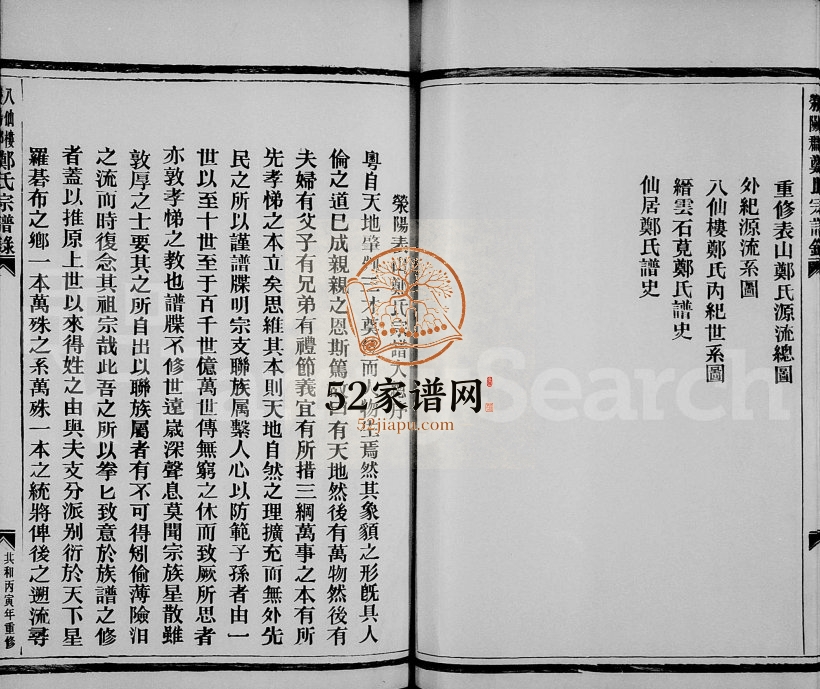 重修表山鄭氏源流總圖
外紀源流系圖
八仙樓鄭氏內紀世系圖
縉雲石莧鄭氏譜史
仙居鄭氏譜史
滎陽表山鄭氏宗譜
粵自天地肇 三才奠 而 物 焉然其象貌之形旣具人
倫之道巳成親親之恩斯篤 曰有天地然後有萬物然後有
夫婦有父子有兄弟有禮節義宜有所措三綱萬事之本有所
先孝悌之本立矣思維其本則天地自然之理擴充而無外先
民之所以謹譜牒明宗支聯族属繫人心以防範子孫者由一
世以至十世至于百千世億萬世傳無窮之休而致厥所思者
亦敦孝悌之教也譜牒不修世遠嵗深聲息莫聞宗族星散雖
敦厚之士要其之所自出以聯族屬者有不可得矧偷薄險汨
之流而時復念其祖宗哉此吾之所以拳匕致意於族譜之修
者蓋以推原上世以來得姓之由與夫支分派别衍於天下星
羅碁布之鄉一本萬殊之系萬殊一本之統將俾後之遡流尋
八仙樓
鄭氏宗譜錄
共和丙寅年重修
52家谱网
52jiapu.com
Search